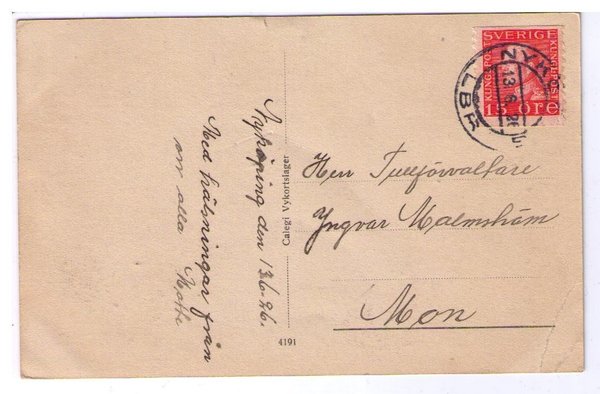 Nyköping den 13.6.26.
Med hälsningar från
oss alla
SVERIGE
KUNGL. POST
KUNGL. POST
15 ÖRE
13.6.26
LBR
Calegi Vykortslager
4191
Herr Tullförvaltare
Yngvar Malmström
Mon